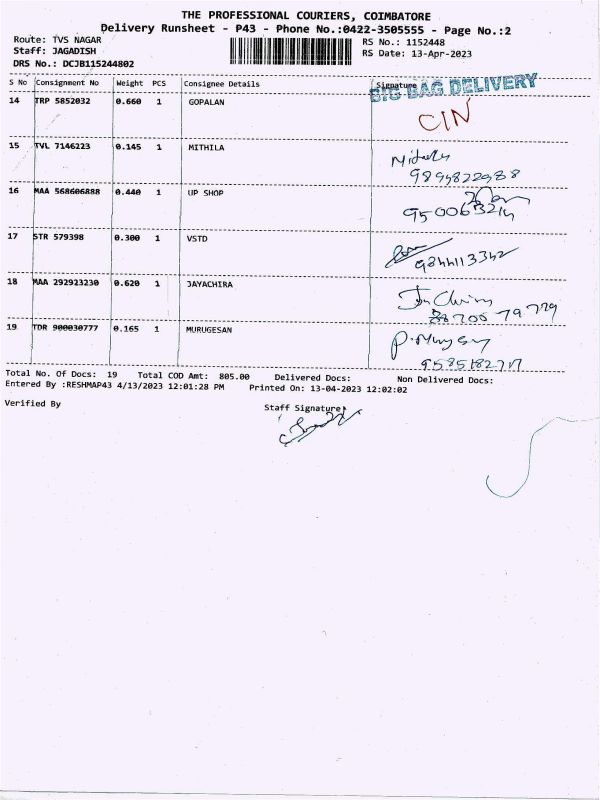 THE PROFESSIONAL COURIERS, COIMBATORE
Delivery Runsheet - P43 - Phone No.:0422-3505555 - Page No.:2
Route: TVS NAGAR
Staff: JAGADISH
DRS No.: DCJB115244802
RS No.: 1152448
RS Date: 13-Apr-2023
S No Consignment No Weight PCS Consignee Details Signature
BIG BAG DELIVERY
14 TRP 5852032 0.660 1 GOPALAN CIN
15 TVL 7146223 0.145 1 MITHILA
16 MAA 568606888 0.440 1 UP SHOP
17 STR 579398 0.300 1 VSTD
9844113342
18 MAA 292923230 0.620 1 JAYACHIRA
19 TDR 900030777 0.165 1 MURUGESAN
Total No. Of Docs: 19 Total COD Amt: 805.00 Delivered Docs: Non Delivered Docs:
Entered By :RESHMAP43 4/13/2023 12:01:28 PM Printed On: 13-04-2023 12:02:02
Verified By Staff Signature